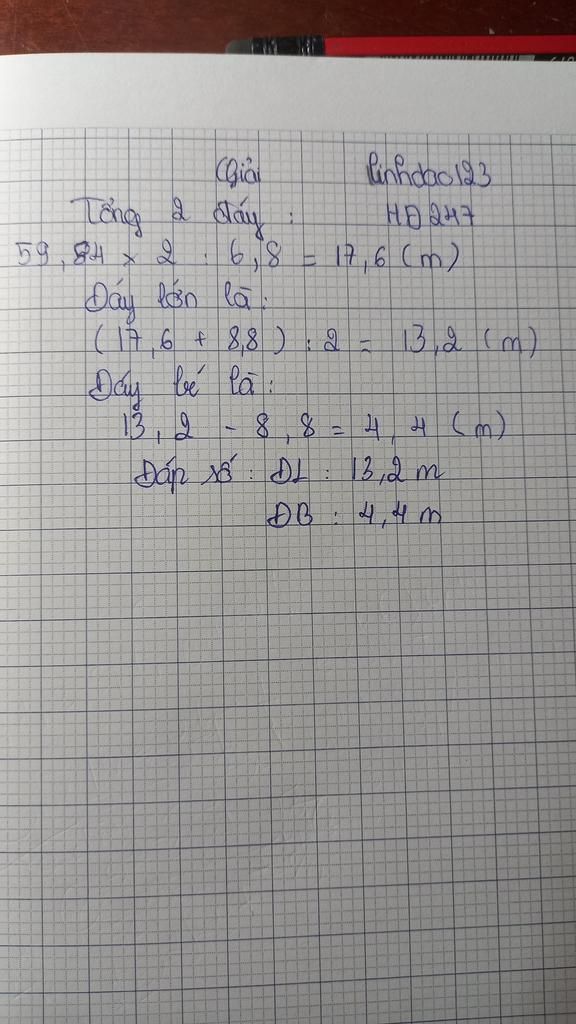 Giải linhdao123
Tổng 2 đáy : HĐ247
59,84 x 2 : 6,8 = 17,6 (m)
Đáy lớn là :
(17,6 + 8,8) : 2 = 13,2 (m)
Đáy bé là :
13,2 - 8,8 = 4,4 (m)
Đáp số : ĐL : 13,2 m
ĐB : 4,4 m